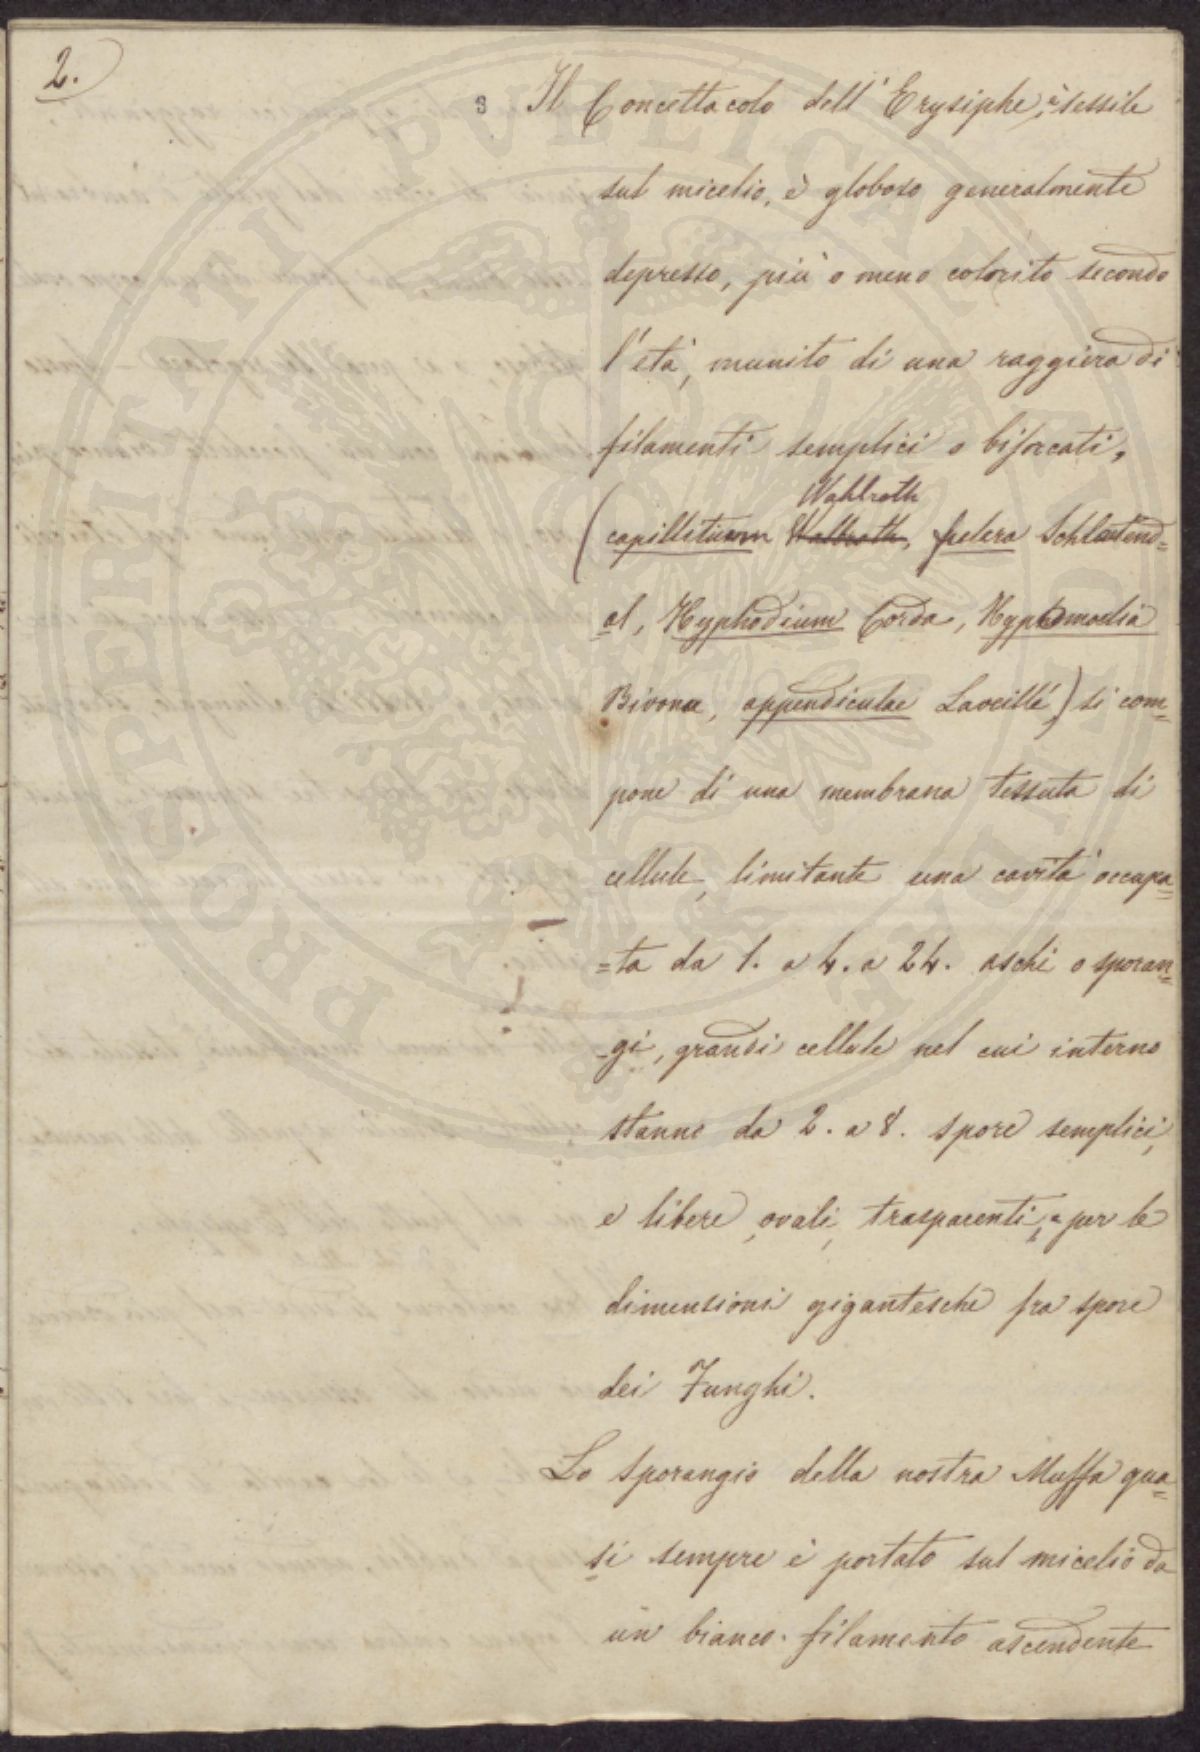 2.
3 Il Concettacolo dell'Erysiphe, è sessile
sul micelio, è globoso generalmente
depresso, più o meno colorito secondo
l'età, munito di una raggiera di
filamenti semplici o biforcati,
Wahlroth
(capillitium Walbroth, fulcra Schlectend=
al, Hyphodium Corda, Hyphomoelia
Bivonæ, appendiculae Laveillé) si com=
pone di una membrana tessuta di
cellule, limitante una cavità occupa=
=ta da 1. a 4. a 24. aschi o sporan=
=gi, grandi cellule nel cui interno
stanno da 2. a 8. spore semplici,
e libere, ovali, trasparenti, e per le
dimensioni gigantesche fra spore
dei Funghi.
Lo sporangio della nostra Muffa qua=
si sempre è portato sul micelio da
un bianco filamento ascendente
PROSPERITATI PVBLICAE